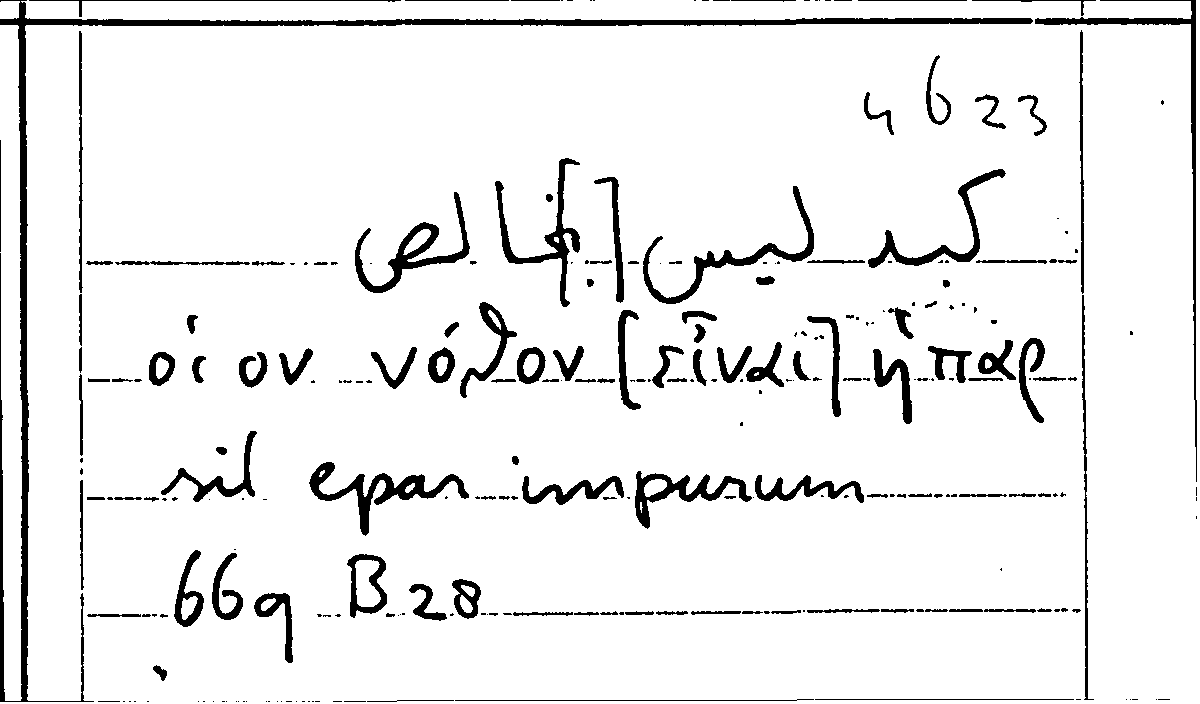 4623
كبد ليس [ب]خالص
οἷον νόθον [εἶναι] ἧπαρ
sil epar impurum
669 B28